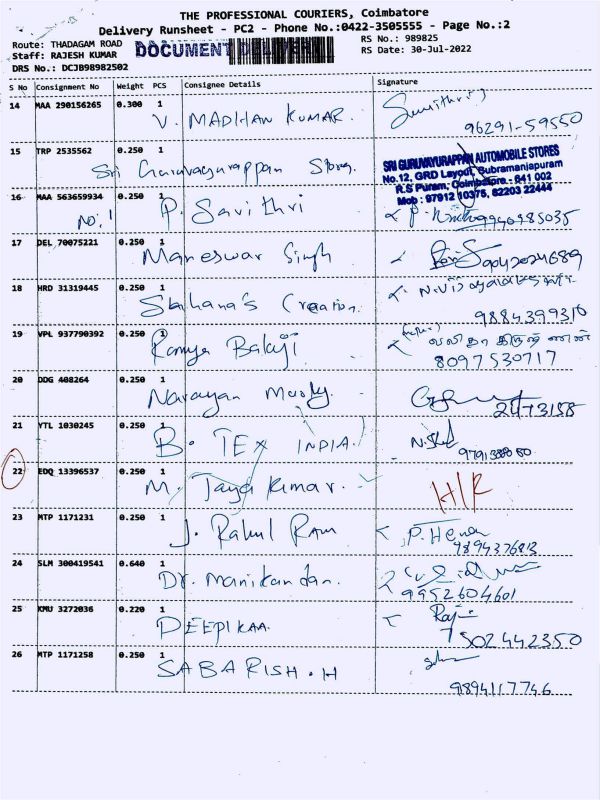 THE PROFESSIONAL COURIERS, Coimbatore
Delivery Runsheet - PC2 - Phone No.:0422-3505555 - Page No.:2
Route: THADAGAM ROAD DOCUMENT RS No.: 989825
Staff: RAJESH KUMAR RS Date: 30-Jul-2022
DRS No.: DCJB98982502
S No Consignment No Weight PCS Consignee Details Signature
14 MAA 290156265 0.300 1
V. MADHAN KUMAR.
96291-59550
15 TRP 2535562 0.250 1
Sri Guruvayurappan Stores
SRI GURUVAYURAPPAN AUTOMOBILE STORES
No.12, GRD Layout, Subramaniapuram
R.S Puram, Coimbatore - 641 002
Mob : 97912 10375, 82203 22444
16 MAA 563659934 0.250 1
NO: 1 P. Savithri
9940985035
17 DEL 70075221 0.250 1
Maheswar Singh
9042024689
18 HRD 31319445 0.250 1
Creation
9884399310
19 VPL 937790392 0.250 1
Ramya Balaji
8097530717
20 DDG 408264 0.250 1
Narayan Murthy
2473158
21 YTL 1030245 0.250 1
B. TEX INDIA
22 EDQ 13396537 0.250 1
M. Jaya Kumar. H/R
23 MTP 1171231 0.250 1
J. Rahul Ram P. Hena
9894376813
24 SLM 300419541 0.640 1
Dr. Manikandan.
9952604601
25 KMU 3272036 0.220 1
DEEPIKAA. Raji
7502442350
26 MTP 1171258 0.250 1
SABARISH.H
9894117746